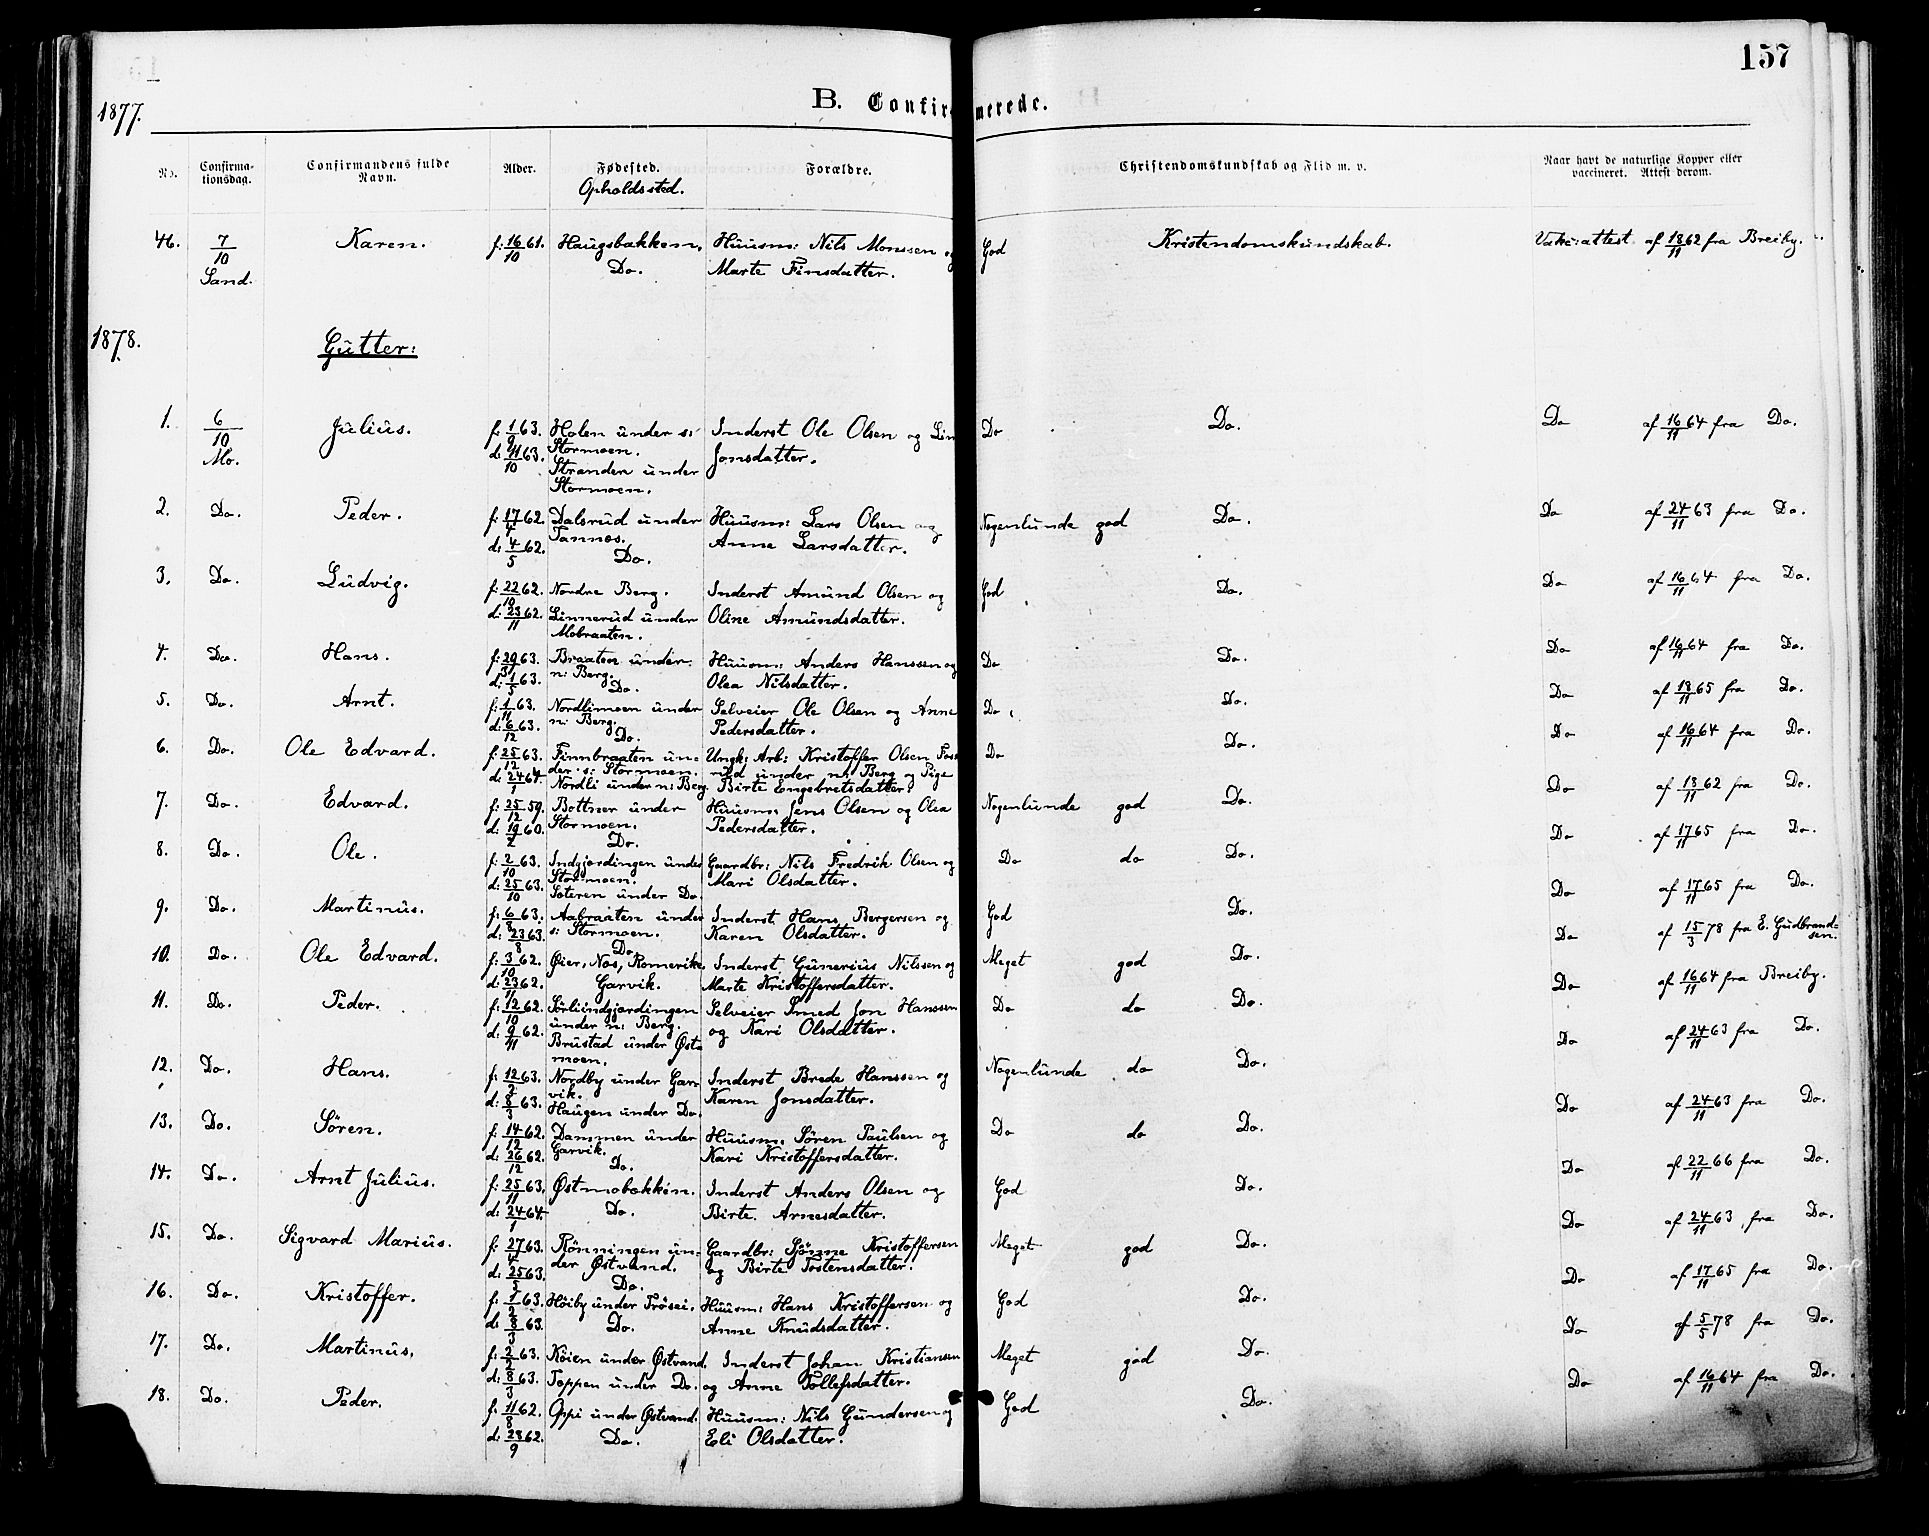 157
1877.
B. Confirmerede.
No. Confirma-tionsdag. Confirmandens fulde Navn. Alder. Fødested. Forældre. Christendomskundskab og Flid m. v. Naar havt de naturlige Kopper eller vaccineret. Attest derom.
Opholdssted.
46. 7/10 Karen. f: 16/10 61. Haugsbakken, Huusm: Nils Monssen og God Kristendomskundskab. Vakc: attest af 18/11 62 fra Breiby.
Sand. Do. Marte Finsdatter.
1878. Gutter:
1. 6/10 Julius. f: 1/9 63. Holen under s: Inderst Ole Olsen og Do Do. Do af 16/11 64 fra Do.
Mo. d: 11/10 63. Stormoen. Jonsdatter.
Stranden under
Stormoen.
2. Do. Peder. f: 17/4 62. Dalsrud under Huusm: Lars Olsen og Nogenlunde god Do. Do af 24/11 63 fra Do.
d: 4/5 62. Tannæs. Anne Larsdatter.
Do.
3. Do. Ludvig. f: 22/10 62. Nordre Berg. Inderst Amund Olsen og God Do. Do af 16/11 64 fra Do.
d: 23/11 62. Linnerud under Oline Amundsdatter.
Mobraaten.
4. Do. Hans. f: 29/3 63. Braaten under Huusm: Anders Hanssen og Do Do. Do af 16/11 64 fra Do.
d: 1/5 63. n: Berg. Olea Nilsdatter.
Do.
5. Do. Arnt. f: 1/11 63. Nordlimoen under Selveier Ole Olsen og Anne Do Do. Do af 18/11 65 fra Do.
d: 6/12 63. n: Berg. Pedersdatter.
Do.
6. Do. Ole Edvard. f: 25/12 63. Finnbraaten un= Ungk: Arb: Kristoffer Olsen Foss Do Do. Do af 16/11 64 fra Do.
d: 24/1 64. der s: Stormoen. rud under n: Berg og Pige
Nordli under n: Berg. Birte Engebretsdatter.
7. Do. Edvard. f: 25/12 59. Bottner under Huusm: Jens Olsen og Olea Nogenlunde god Do. Do af 18/11 62 fra Do.
d: 19/2 60. Stormoen. Pedersdatter.
Do.
8. Do. Ole. f: 2/10 63. Indgjærdingen under Gaardbr: Nils Fredrik Olsen og Do do Do. Do af 17/11 65 fra Do.
d: 25/10 63. Stormoen. Mari Olsdatter.
Soteren under Do.
9. Do. Martinus. f: 6/8 63. Aabraaten under Inderst Hans Bergersen og God Do. Do af 17/11 65 fra Do.
d: 23/8 63. s: Stormoen. Karen Olsdatter.
Do.
10. Do. Ole Edvard. f: 3/10 62. Øier, Næs, Romerike. Inderst Gunerius Nilssen og Meget god Do. Do af 15/3 78 fra E. Gudbrand=sen.
d: 23/11 62. Garvik. Marte Kristoffersdatter.
11. Do. Peder. f: 12/10 62. Sörliindgjærdingen Selveier Smed Jon Hanssen Do do Do. Do af 16/11 64 fra Breiby.
d: 9/11 62. under n: Berg. og Kari Olsdatter.
Brustad under Øst=
moen.
12. Do. Hans. f: 12/2 63. Nordby under Gar= Inderst Brede Hanssen og Nogenlunde do Do. Do af 24/11 63 fra Do.
d: 8/3 63. vik. Karen Jonsdatter.
Haugen under Do.
13. Do. Sören. f: 14/12 62. Dammen under Huusm. Sören Paulsen og Do do Do. Do af 24/11 63 fra Do.
d: 26/12 62. Garvik. Kari Kristoffersdatter.
Do.
14. Do. Arnt Julius. f: 25/11 63. Østmobakken. Inderst Anders Olsen og God Do. Do af 22/11 66 fra Do.
d: 24/1 64. Do. Birte Arnesdatter.
15. Do. Sigvard Marius. f: 27/4 63. Rønningen un= Gaardbr: Sjönne Kristoffersen Meget god Do. Do af 24/11 63 fra Do.
d: 25/5 63. der Østvand. og Birte Tostensdatter.
Do.
16. Do. Kristoffer. f: 1/2 63. Höiby under Trösei. Huusm: Hans Kristoffersen og God Do. Do af 17/11 65 fra Do.
d: 8/3 63. Do. Anne Knudsdatter.
17. Do. Martinus. f: 2/2 63. Köien under Østvand. Inderst Johan Kristiansen Meget god Do. Do af 5/5 78 fra Do.
d: 8/3 63. Toppen under Do. og Anne Tollefsdatter.
18. Do. Peder. f: 11/8 62. Oppi under Østvand. Huusm: Nils Gundersen og God Do. Do af 16/11 64 fra Do.
d: 23/9 62. Do. Eli Olsdatter.